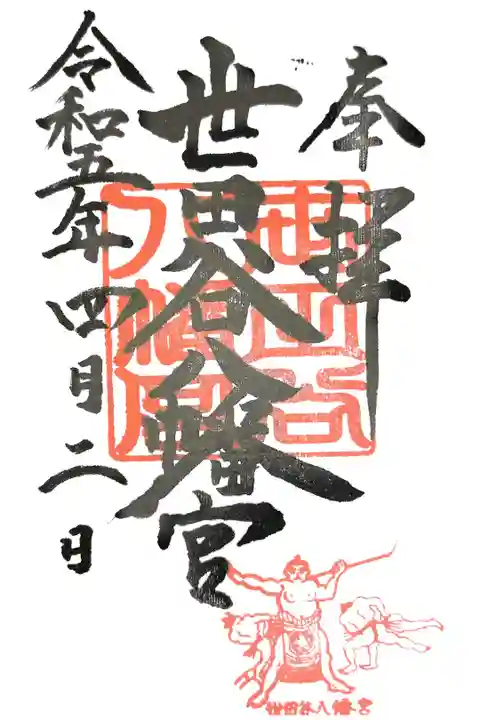 奉拝
世田谷八幡宮
令和五年四月二日
世田谷
八幡宮
世田谷八幡宮